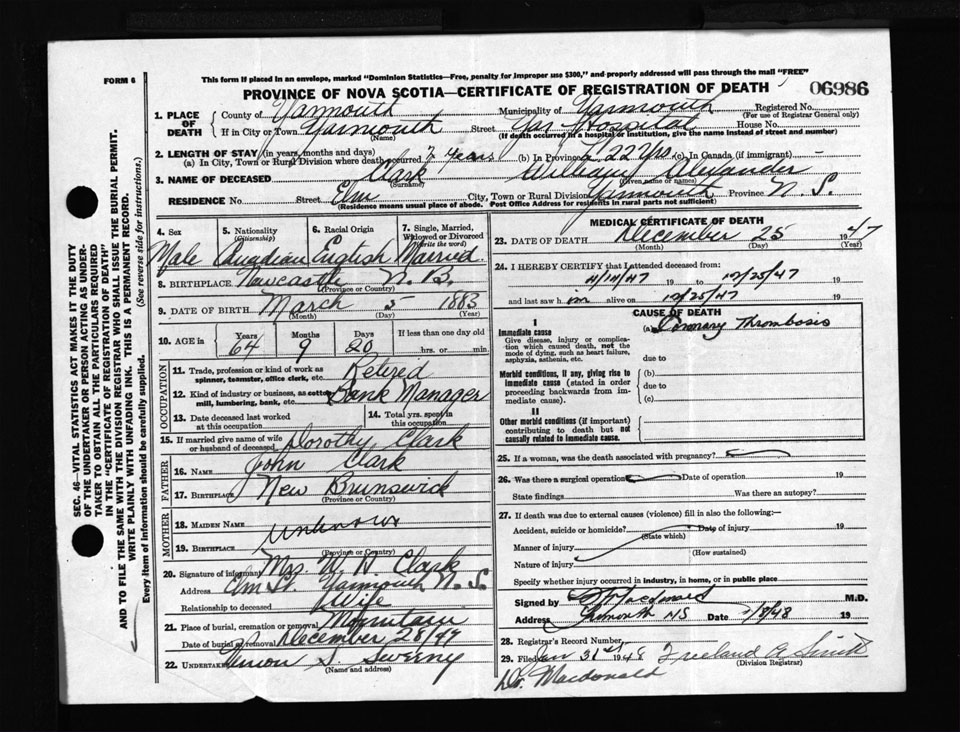 This form if placed in an envelope, marked "Dominion Statistics—Free, penalty for improper use $300," and properly addressed will pass through the mail "FREE"
FORM 6
PROVINCE OF NOVA SCOTIA—CERTIFICATE OF REGISTRATION OF DEATH
06986
1. PLACE OF DEATH
County of Yarmouth Municipality of Yarmouth Registered No.
(For use of Registrar General only)
If in City or Town Yarmouth Street Yar Hospital House No.
(Name) (If death occurred in a hospital or institution, give the name instead of street and number)
2. LENGTH OF STAY (in years, months and days)
(a) In City, Town or Rural Division where death occurred 7 years (b) In Province 22 yrs (c) In Canada (if immigrant)
3. NAME OF DECEASED Clark William Alexander
(Surname) (Given name or names)
RESIDENCE No. Street Elm City, Town or Rural Division Yarmouth Province N. S.
(Residence means usual place of abode. Post Office Address for residents in rural parts not sufficient)
4. Sex
Male
5. Nationality (Citizenship)
Canadian
6. Racial Origin
English
7. Single, Married, Widowed or Divorced (Write the word)
Married
8. BIRTHPLACE Newcastle N. B.
(Province or Country)
9. DATE OF BIRTH March 5 1883
(Month) (Day) (Year)
10. AGE in Years Months Days If less than one day old
64 9 20 hrs. or min.
OCCUPATION
11. Trade, profession or kind of work as spinner, teamster, office clerk, etc. Retired
12. Kind of industry or business, as cotton mill, lumbering, bank, etc. Bank Manager
13. Date deceased last worked at this occupation
14. Total yrs. spent in this occupation
15. If married give name of wife or husband of deceased Dorothy Clark
FATHER
16. NAME John Clark
17. BIRTHPLACE New Brunswick
(Province or Country)
MOTHER
18. MAIDEN NAME
unknown
19. BIRTHPLACE
(Province or Country)
20. Signature of informant Mrs. W. A. Clark
Address Elm St. Yarmouth N. S.
Relationship to deceased Wife
21. Place of burial, cremation or removal Mountain
Date of burial or removal December 28/47
22. UNDERTAKER Vernon S. Sweeny
(Name and address)
MEDICAL CERTIFICATE OF DEATH
23. DATE OF DEATH December 25 1947
(Month) (Day) (Year)
24. I HEREBY CERTIFY that I attended deceased from
11/14/47 19 to 12/25/47 19
and last saw him alive on 12/25/47 19
CAUSE OF DEATH
I
Immediate cause
Give disease, injury or complication which caused death, not the mode of dying, such as heart failure, asphyxia, asthenia, etc.
(a) Coronary Thrombosis
due to
Morbid conditions, if any, giving rise to immediate cause (stated in order proceeding backwards from immediate cause).
(b)
due to
(c)
II
Other morbid conditions (if important) contributing to death but not causally related to immediate cause.
25. If a woman, was the death associated with pregnancy?
26. Was there a surgical operation Date of operation 19
State findings Was there an autopsy?
27. If death was due to external causes (violence) fill in also the following:—
Accident, suicide or homicide? Date of injury 19
(State which)
Manner of injury
(How sustained)
Nature of injury
Specify whether injury occurred in industry, in home, or in public place
Signed by Macdonald M.D.
Address Yarmouth NS Date 1/8/48 19
28. Registrar's Record Number
29. Filed Jan 31st 1948 Freeland A Smith
(Division Registrar)
Dr. Macdonald
SEC. 46—VITAL STATISTICS ACT MAKES IT THE DUTY
OF THE UNDERTAKER OR PERSON ACTING AS UNDER-
TAKER TO OBTAIN ALL THE PARTICULARS REQUIRED
IN THE "CERTIFICATE OF REGISTRATION OF DEATH"
AND TO FILE THE SAME WITH THE DIVISION REGISTRAR WHO SHALL ISSUE THE BURIAL PERMIT.
WRITE PLAINLY WITH UNFADING INK. THIS IS A PERMANENT RECORD.
Every item of information should be carefully supplied. (See reverse side for instructions.)